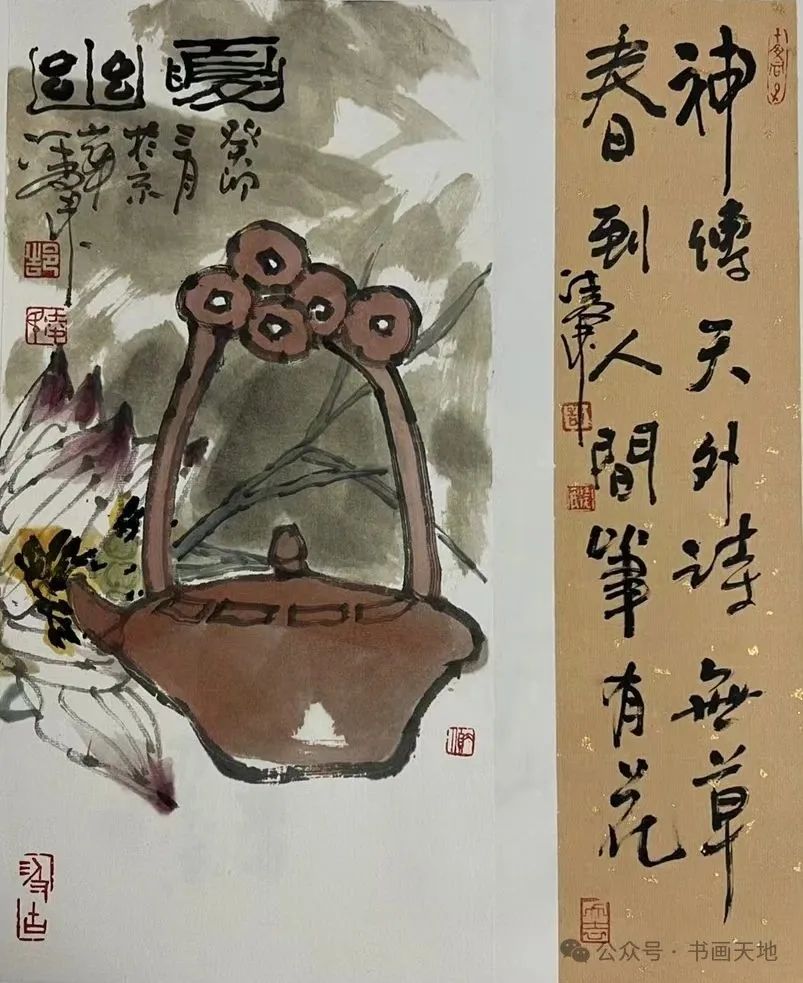 夏幽
癸卯
三月
於京
華
神傳天外詩無草
春到人間筆有花
公众号 · 书画天地